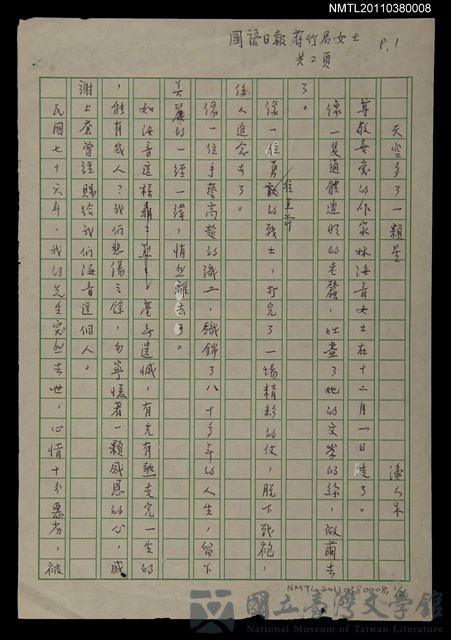 NMTL20110380008
國語日報 蔣竹君女士
共二頁
P.1
天空多了一顆星
潘人木
尊敬喜愛的作家林海音女士在十二月一日走了。
像一隻通體透明的老蠶，吐盡了她的文學的絲，做繭去
了。
像一位勇敢的戰士，打完了一場精彩的仗，脫下戰袍，
任人追念去了。
像一位手藝高超的織工，織錦了八十多年的人生，留下
美麗的一經一緯，悄然離去了。
如海音這樣轟轟烈烈、毫無遺憾，有光有熱走完一生的
，能有幾人？我們悲傷之餘，勿寧懷著一顆感恩的心，感
謝上蒼曾經賜給我們海音這個人。
民國七十六年，我的先生突然去世，心情十分惡劣，被
NMTL20110380008,1/2
國立臺灣文學館
National Museum of Taiwan Literature